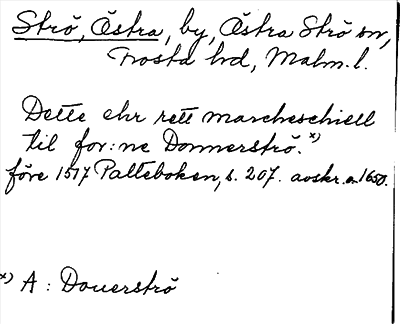 Strö, Östra, by, Östra Strö sn,
Frosta hd, Malm. l.
Dette ehr rett marcheschiell
til for:ne Donnerströ. x)
före 1517 Palteboken, s. 207. avskr. o. 1650.
x) A: Douerströ